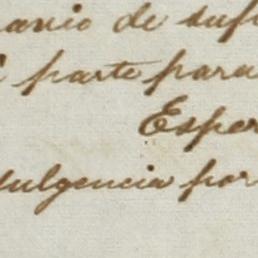 ario de suf
parte para
Esper
dulgencia por